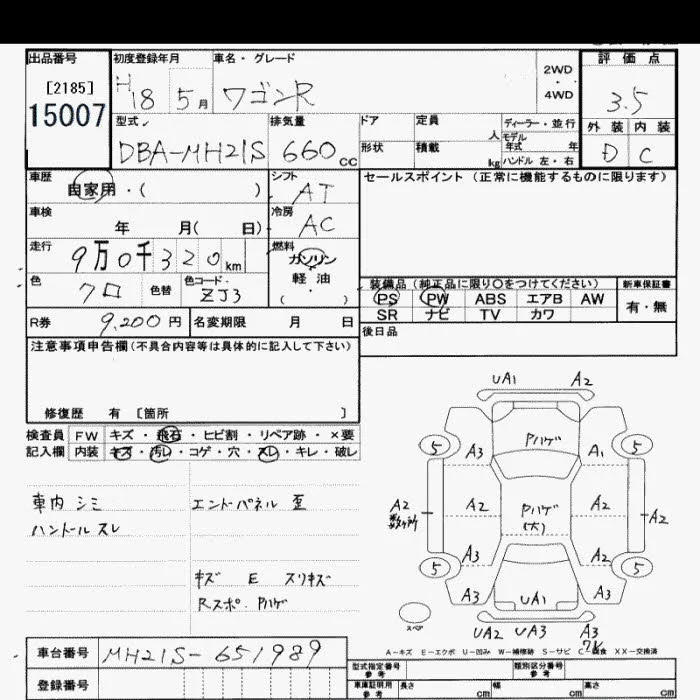 出品番号
[2185]
15007
初度登録年月
H18 5月
車名・グレード
ワゴンR
2WD
・
4WD
評価点
3.5
外装 内装
D C
型式
DBA-MH21S
排気量
660cc
ドア
形状
定員
人
積載
kg
ディーラー・並行
モデル
年式 年
ハンドル 左・右
車歴
自家用・( )
シフト
AT
セールスポイント(正常に機能するものに限ります)
車検
年 月( 日)
冷房
AC
走行
9万0千320km
燃料
ガソリン
軽油
・
( )
色
クロ
色替
色コード
ZJ3
装備品(純正品に限り○をつけてください)
PS PW ABS エアB AW
SR ナビ TV カワ
新車保証書
有・無
R券
9,200円
名変期限 月 日
後日品
注意事項申告欄(不具合内容等は具体的に記入して下さい)
修復歴 有 [箇所 ]
検査員 FW キズ・飛石・ヒビ割・リペア跡・×要
記入欄 内装 キズ・汚レ・コゲ・穴・スレ・キレ・破レ
車内 シミ
ハンドル スレ
エンドパネル 歪
キズ E スリキズ
Rスポ. Pハゲ
UA1 A2
5 A3 Pハゲ A1 5
A2 A2 Pハゲ A2 A2
(大)
5 A3 A2 5
A3 UA1 A3
スペア
UA2 UA3 A3
A-キズ E-エクボ U-凹み W-補修跡 S-サビ C-腐食 XX-交換済
車台番号
MH21S-651989
登録番号
型式指定番号
参考
類別区分番号
参考
車庫証明用
参考
長さ cm 幅 cm 高さ cm